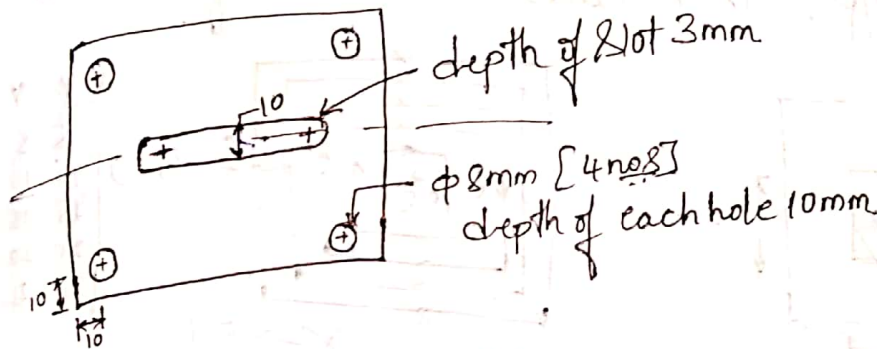 depth of Slot 3mm
10
ϕ8mm [4nos]
depth of each hole 10mm
10
10